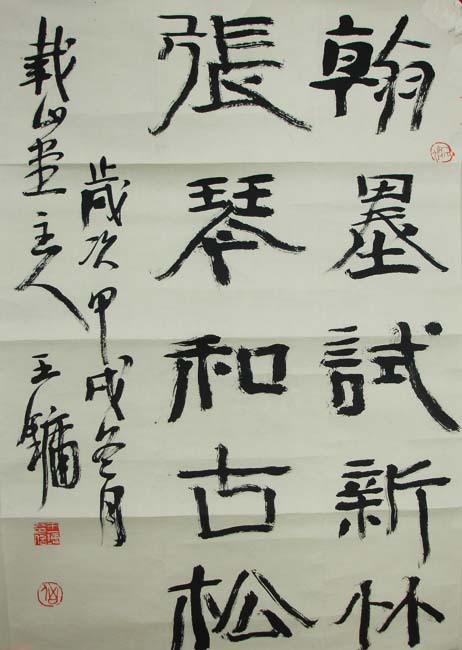 翰墨試新竹
張琴和古松
歲次甲戌冬月
載山堂主人
王鏞